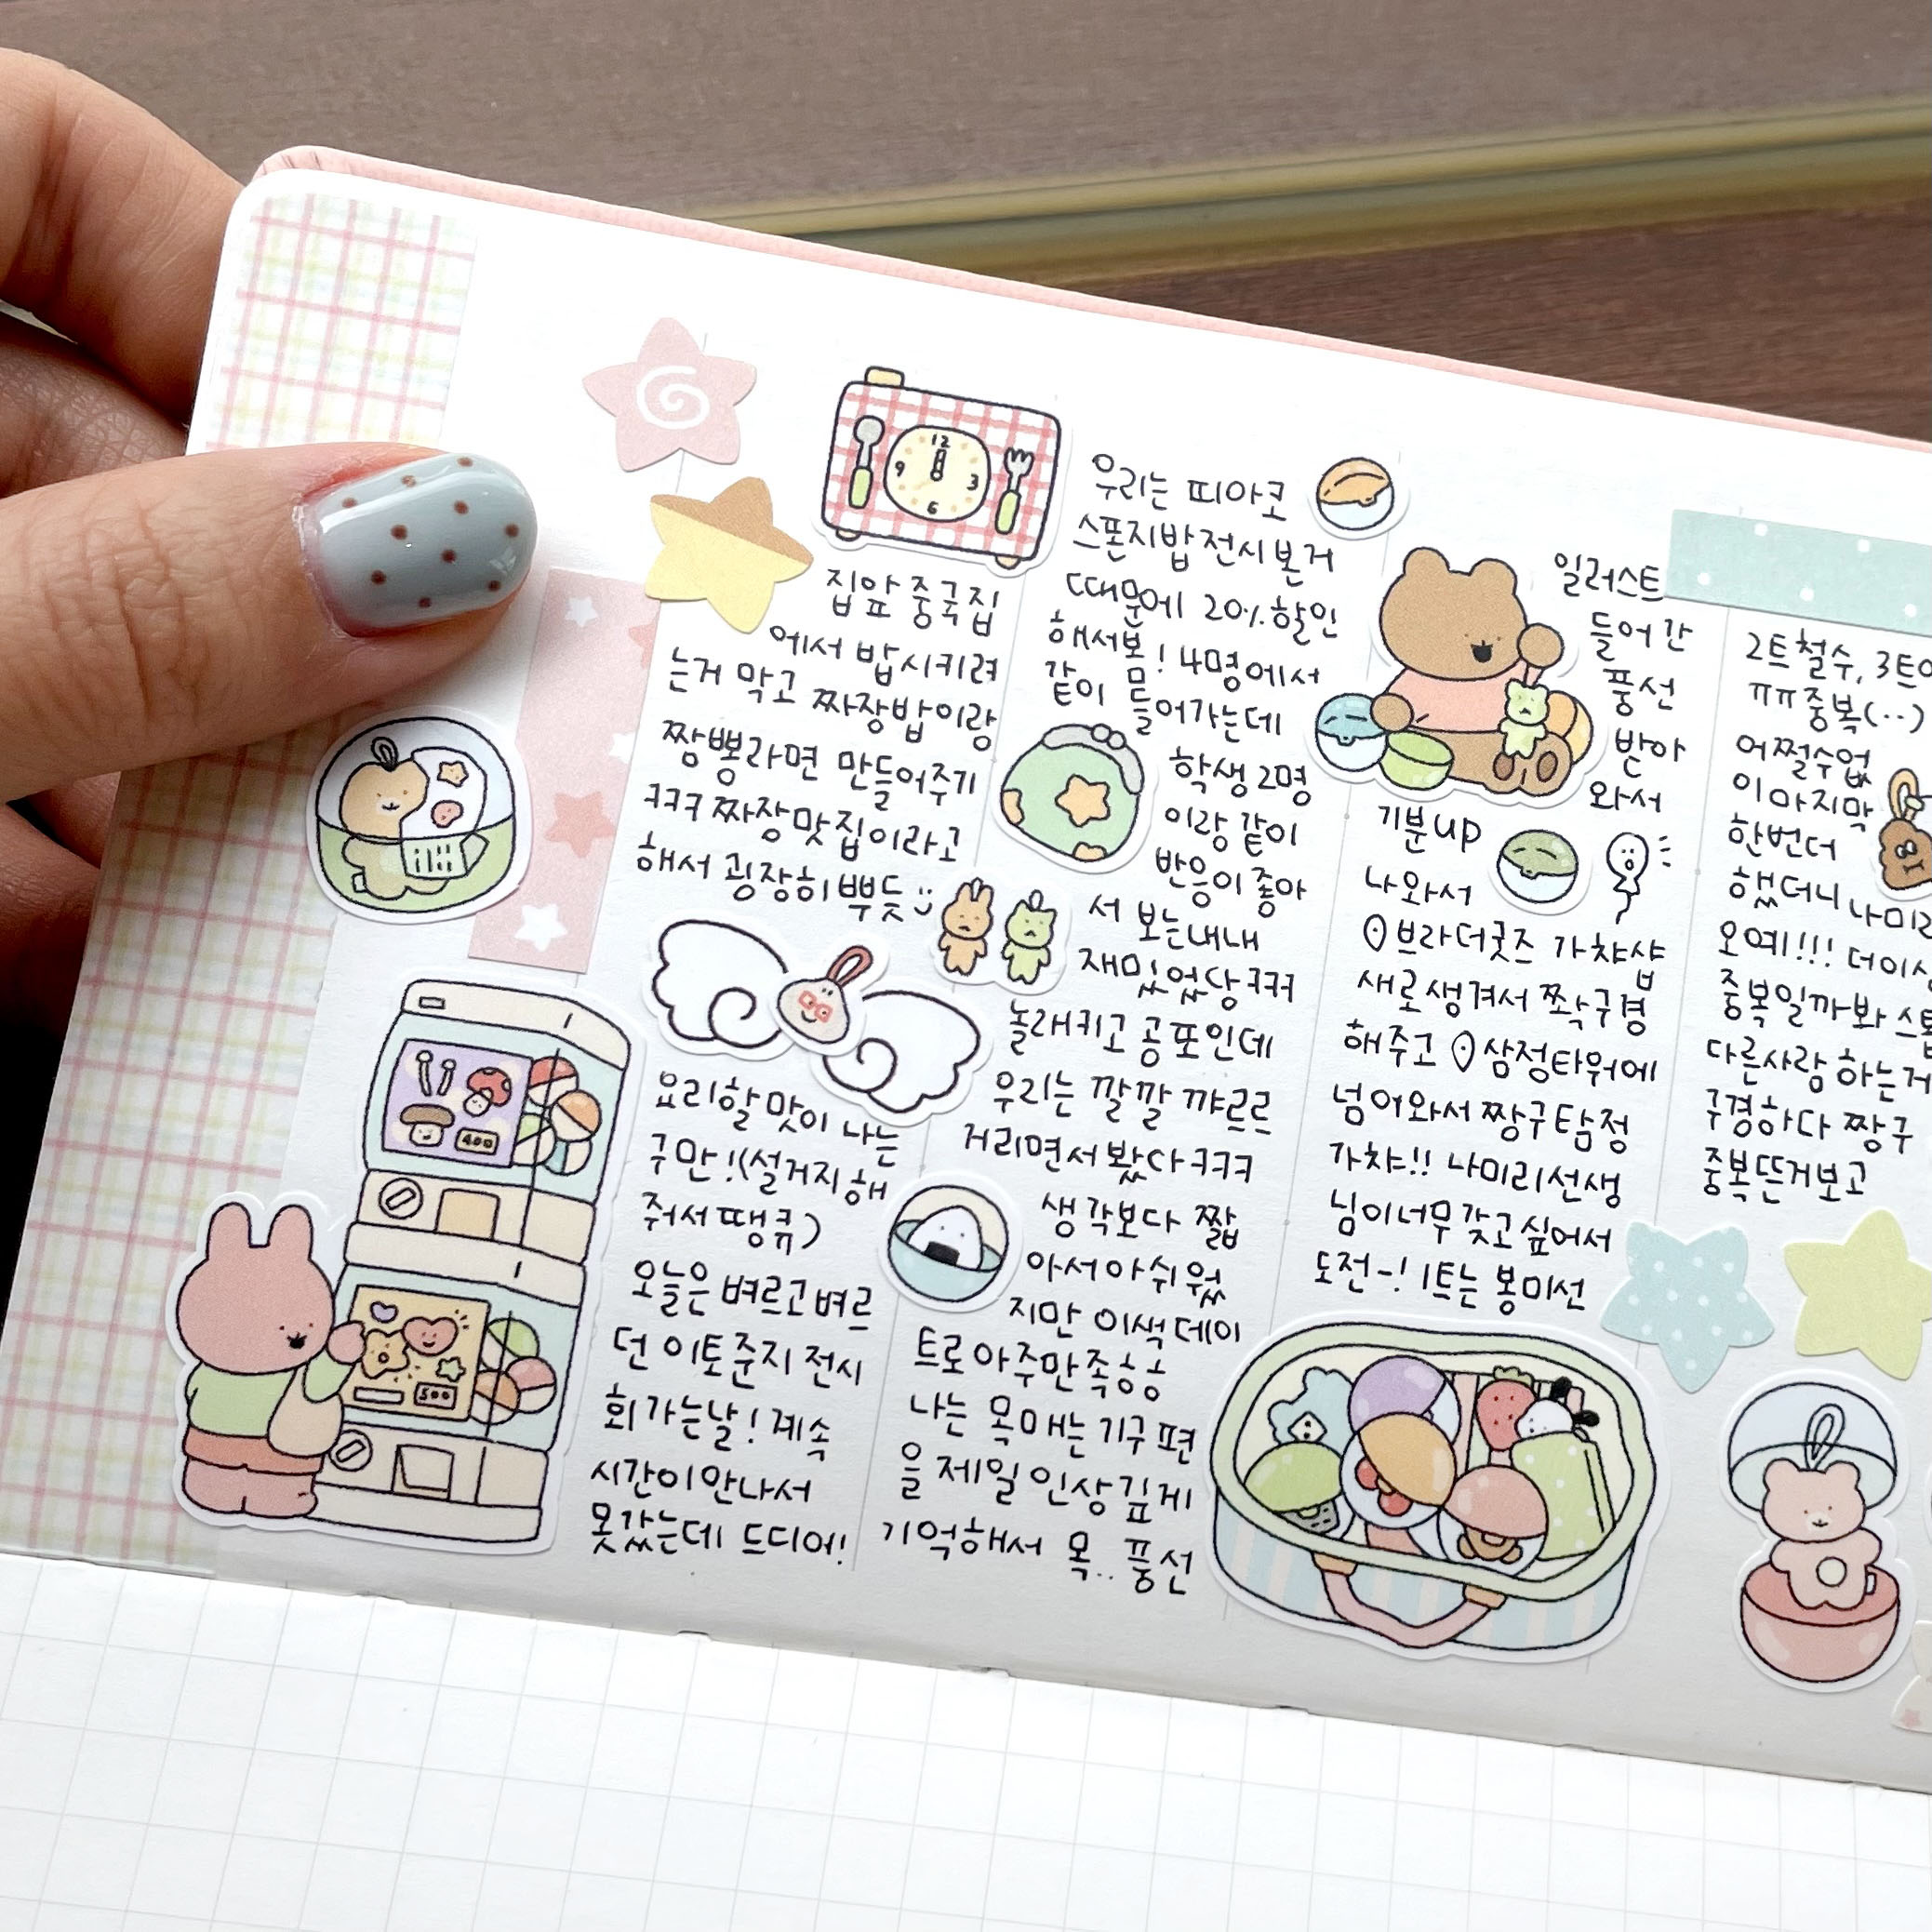 집앞 중국집
에서 밥시키려
는거 막고 짜장밥이랑
짬뽕라면 만들어주기
ㅋㅋㅋ 짜장맛집이라고
해서 굉장히뿌듯
요리할맛이 나는
구만!(설거지해
줘서 땡큐)
오늘은 벼르고벼르
던 이토준지 전시
회 가는날! 계속
시간이안나서
못갔는데 드디어!
우리는 피아코
스폰지밥전시본거
때문에 20%할인
해서봄! 4명에서
같이 들어가는데
학생2명
이랑 같이
반응이좋아
서 보는내내
재밌었당ㅋㅋㅋ
놀래키고 공포인데
우리는 깔깔 꺄르르
거리면서봤다ㅋㅋㅋ
생각보다 짧
아서아쉬웠
지만 이색데이
트로아주만족흥흥
나는 목매는기구편
을 제일인상깊게
기억해서 목.. 풍선
일러스트
들어간
풍선
받아
와서
기분up
나와서
브라더굿즈 가챠샵
새로생겨서 쫙구경
해주고 삼정타워에
넘어와서 짱구탐정
가챠!! 나미리선생
님이너무갖고싶어서
도전-! 1트는 봉미선
2트철수, 3트
ㅠㅠ중복(..)
어쩔수없
이마지막
한번더
했더니 나미리
오예!!! 더이상
중복일까봐 스톱
다른사람 하는거
구경하다 짱구
중복뜬거보고
12
3
6
9
400
500